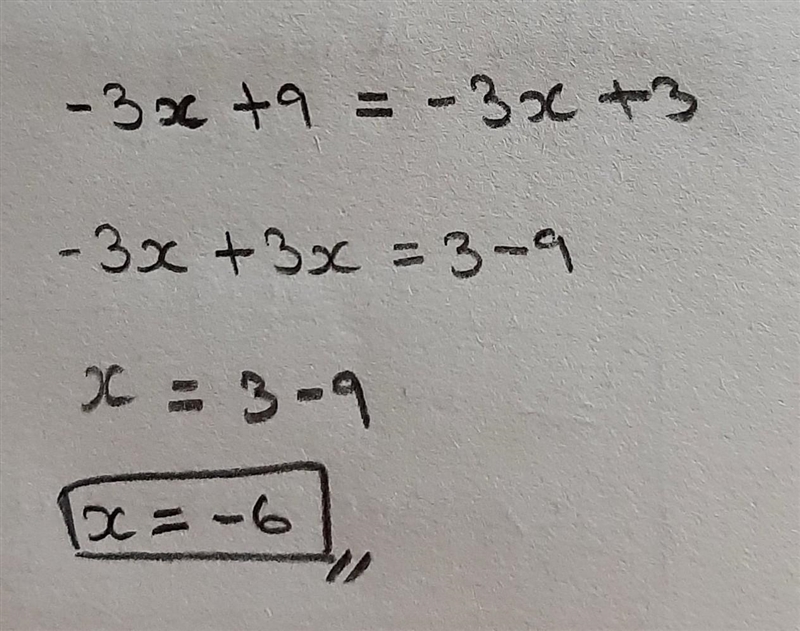 -3x + 9 = -3x + 3
-3x + 3x = 3 - 9
x = 3 - 9
x = -6